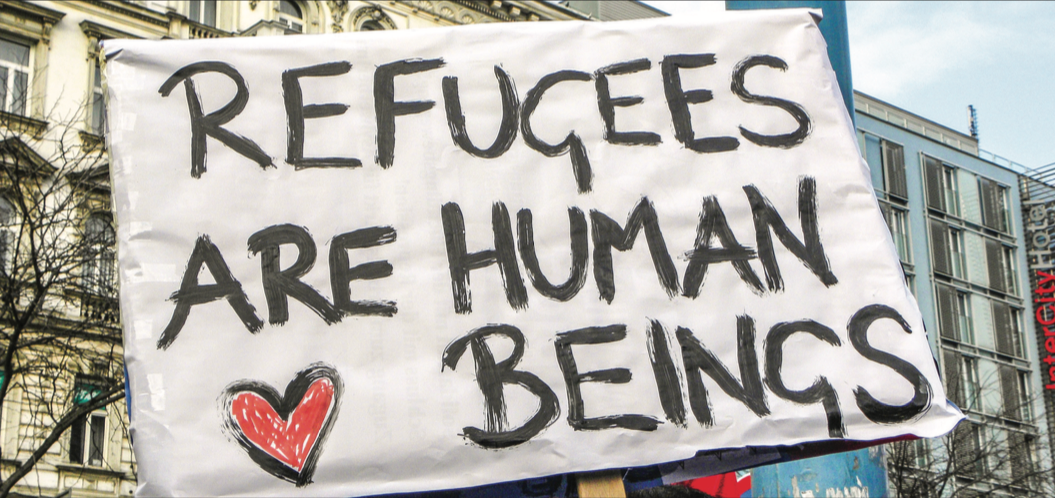 REFUGEES
ARE HUMAN
BEINGS
InterCityHotel